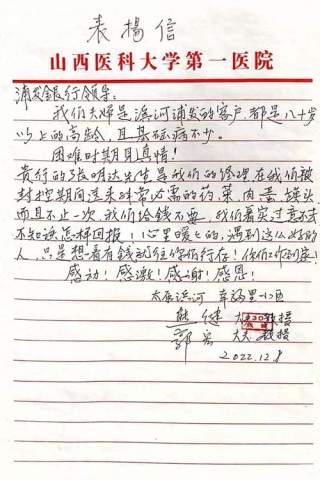 表揚信
山西医科大学第一医院
浦发銀行领导：
我们夫婦是滨河浦发的客户，都是八十岁
以上的高龄，且基础病不少。
困难时期見真情！
贵行的张明达先生是我们的经理在我们被
封控期间送来非常必需的药、菜、肉蛋、罐头，
而且不止一次，我们给钱不要，我们着实过意不去
不知该怎样回报！！心里暖上的，遇到这么好的
人，只是想着有钱就往你们行存！你们工作到家！
感动！感激！感谢！感恩！
太原滨河
熊健 教授
郭 大夫 教授
2022.12.8